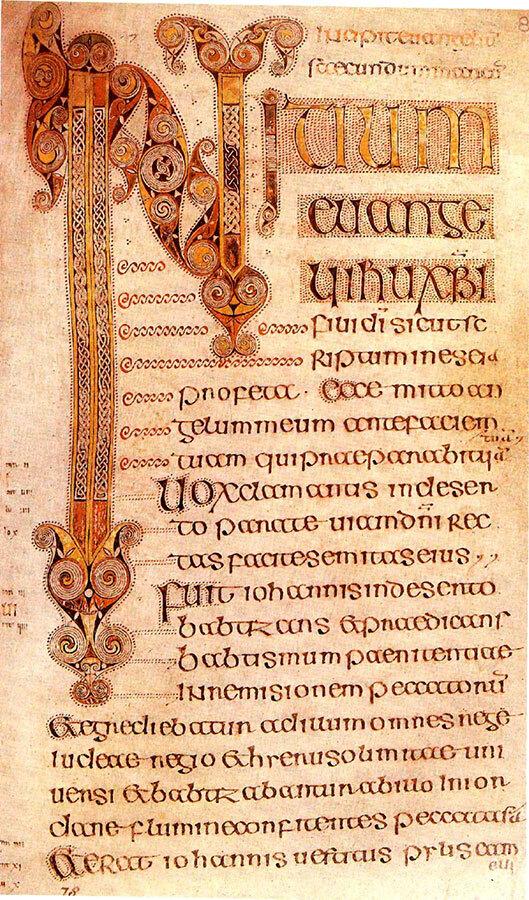 INITIUM
euange
lii ihu xp̄i
fili di sicut sc
riptum in esei
profeta · Ecce mitto an
gelum meum ante faciem
tuam qui praeparabit uiā
tuā
Uox clamantis in deser
to parate uiam dn̄i rec
tas facite semitas eius
Fuit iohannis in deserto
babtizans & praedicans
babtismum paenitentiae
in remisionem peccatorū
& egrediebatur ad illum omnes
iudeae regio & hierusolimitae uni
uersi & babtizabantur ab illo in ior
dane flumine confitentes peccata sua
& erat iohannis uestitus pylis cam
eli